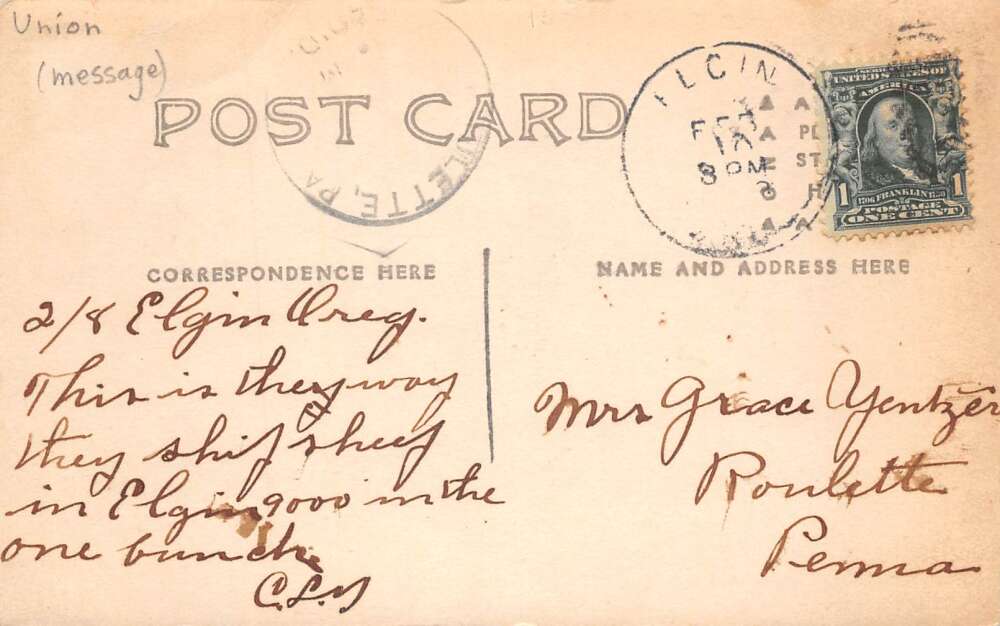 Union
(message)
POST CARD
LETTE, PA
ELGIN
FEB
8 PM
UNITED STATES OF
AMERICA
1 1
FRANKLIN
POSTAGE
ONE CENT
CORRESPONDENCE HERE
NAME AND ADDRESS HERE
2/8 Elgin Oreg.
This is they way
they ship sheep
in Elgin 9000 in the
one bunch.
C.L.Y
Mrs Grace Yentzer
Roulette
Penna